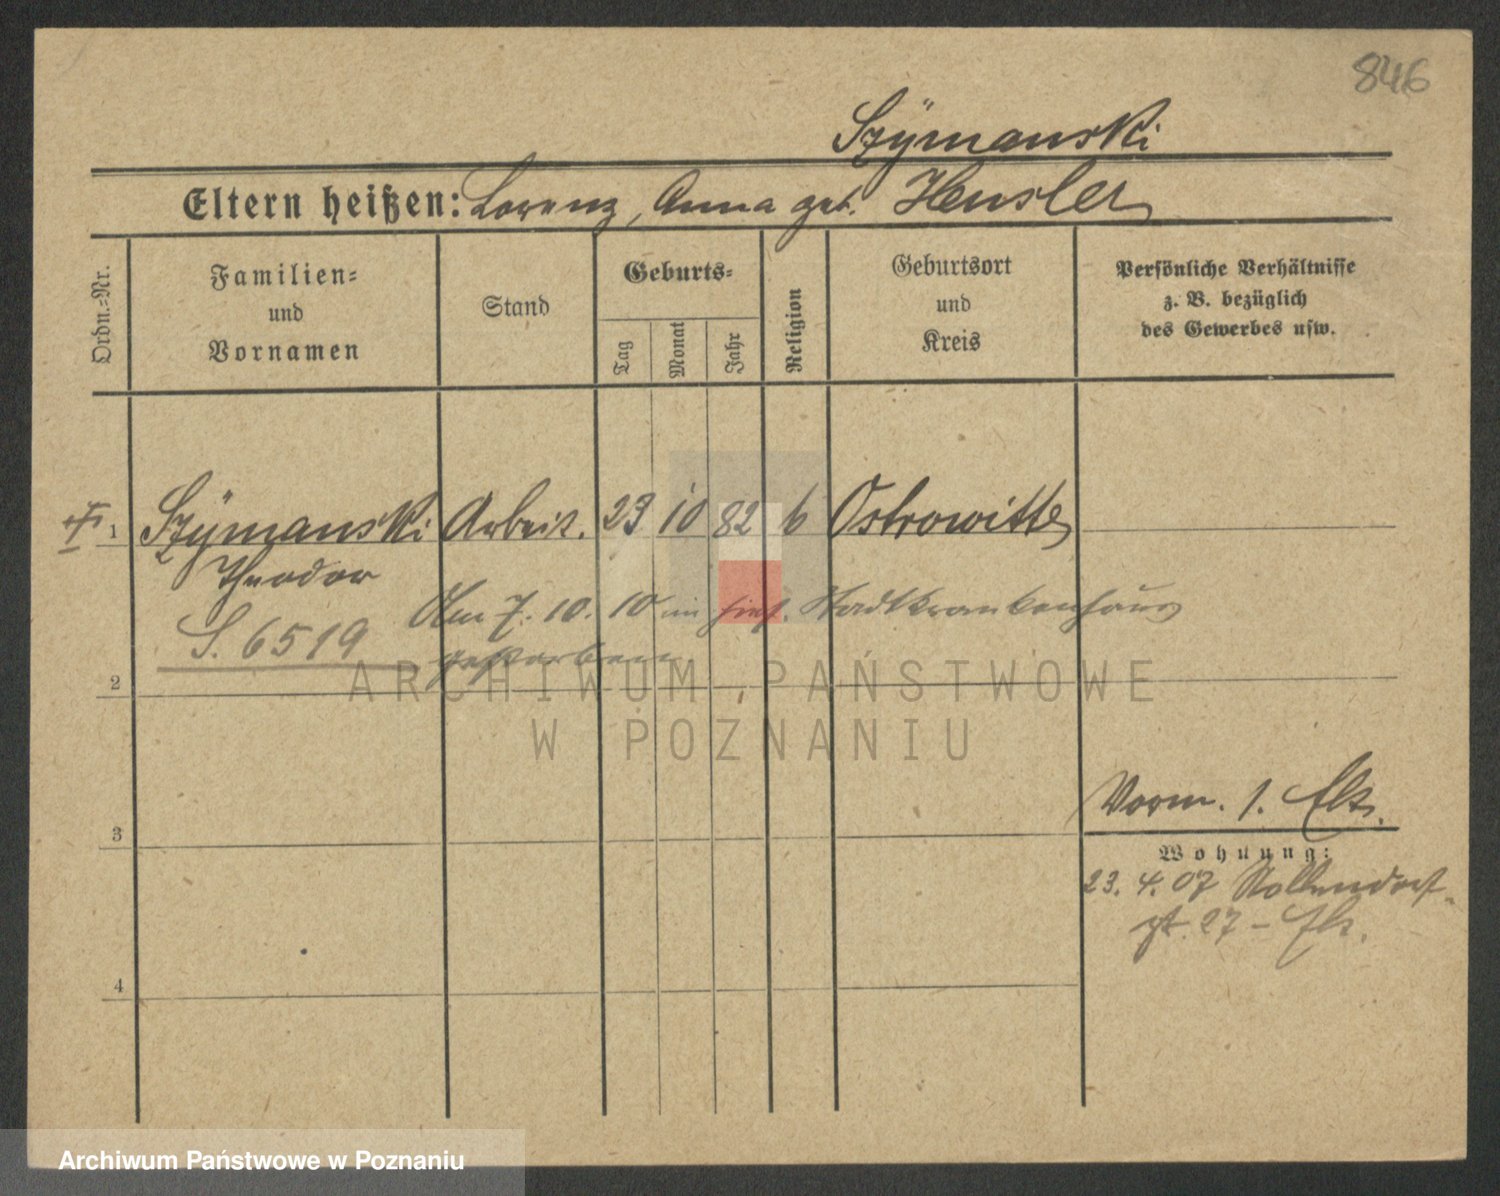 846
Szÿmanski
Eltern heißen: Lorenz, Anna geb. Hensler
Ordn.-Nr.
Familien-
und
Vornamen
Stand
Geburts-
Tag
Monat
Jahr
Religion
Geburtsort
und
Kreis
Persönliche Verhältnisse
z. B. bezüglich
des Gewerbes usw.
1 Szÿmanski Arbeit. 23 10 82 Ostrowitte
Theodor
Am 7. 10. 10 im hies. Stadtkrankenhaus
S. 6519
gestorben
2
ARCHIWUM PAŃSTWOWE
W POZNANIU
Vorm. 1.
3
Wohnung:
23. 4. 07 Nollendorf-
27 -
4
Archiwum Państwowe w Poznaniu